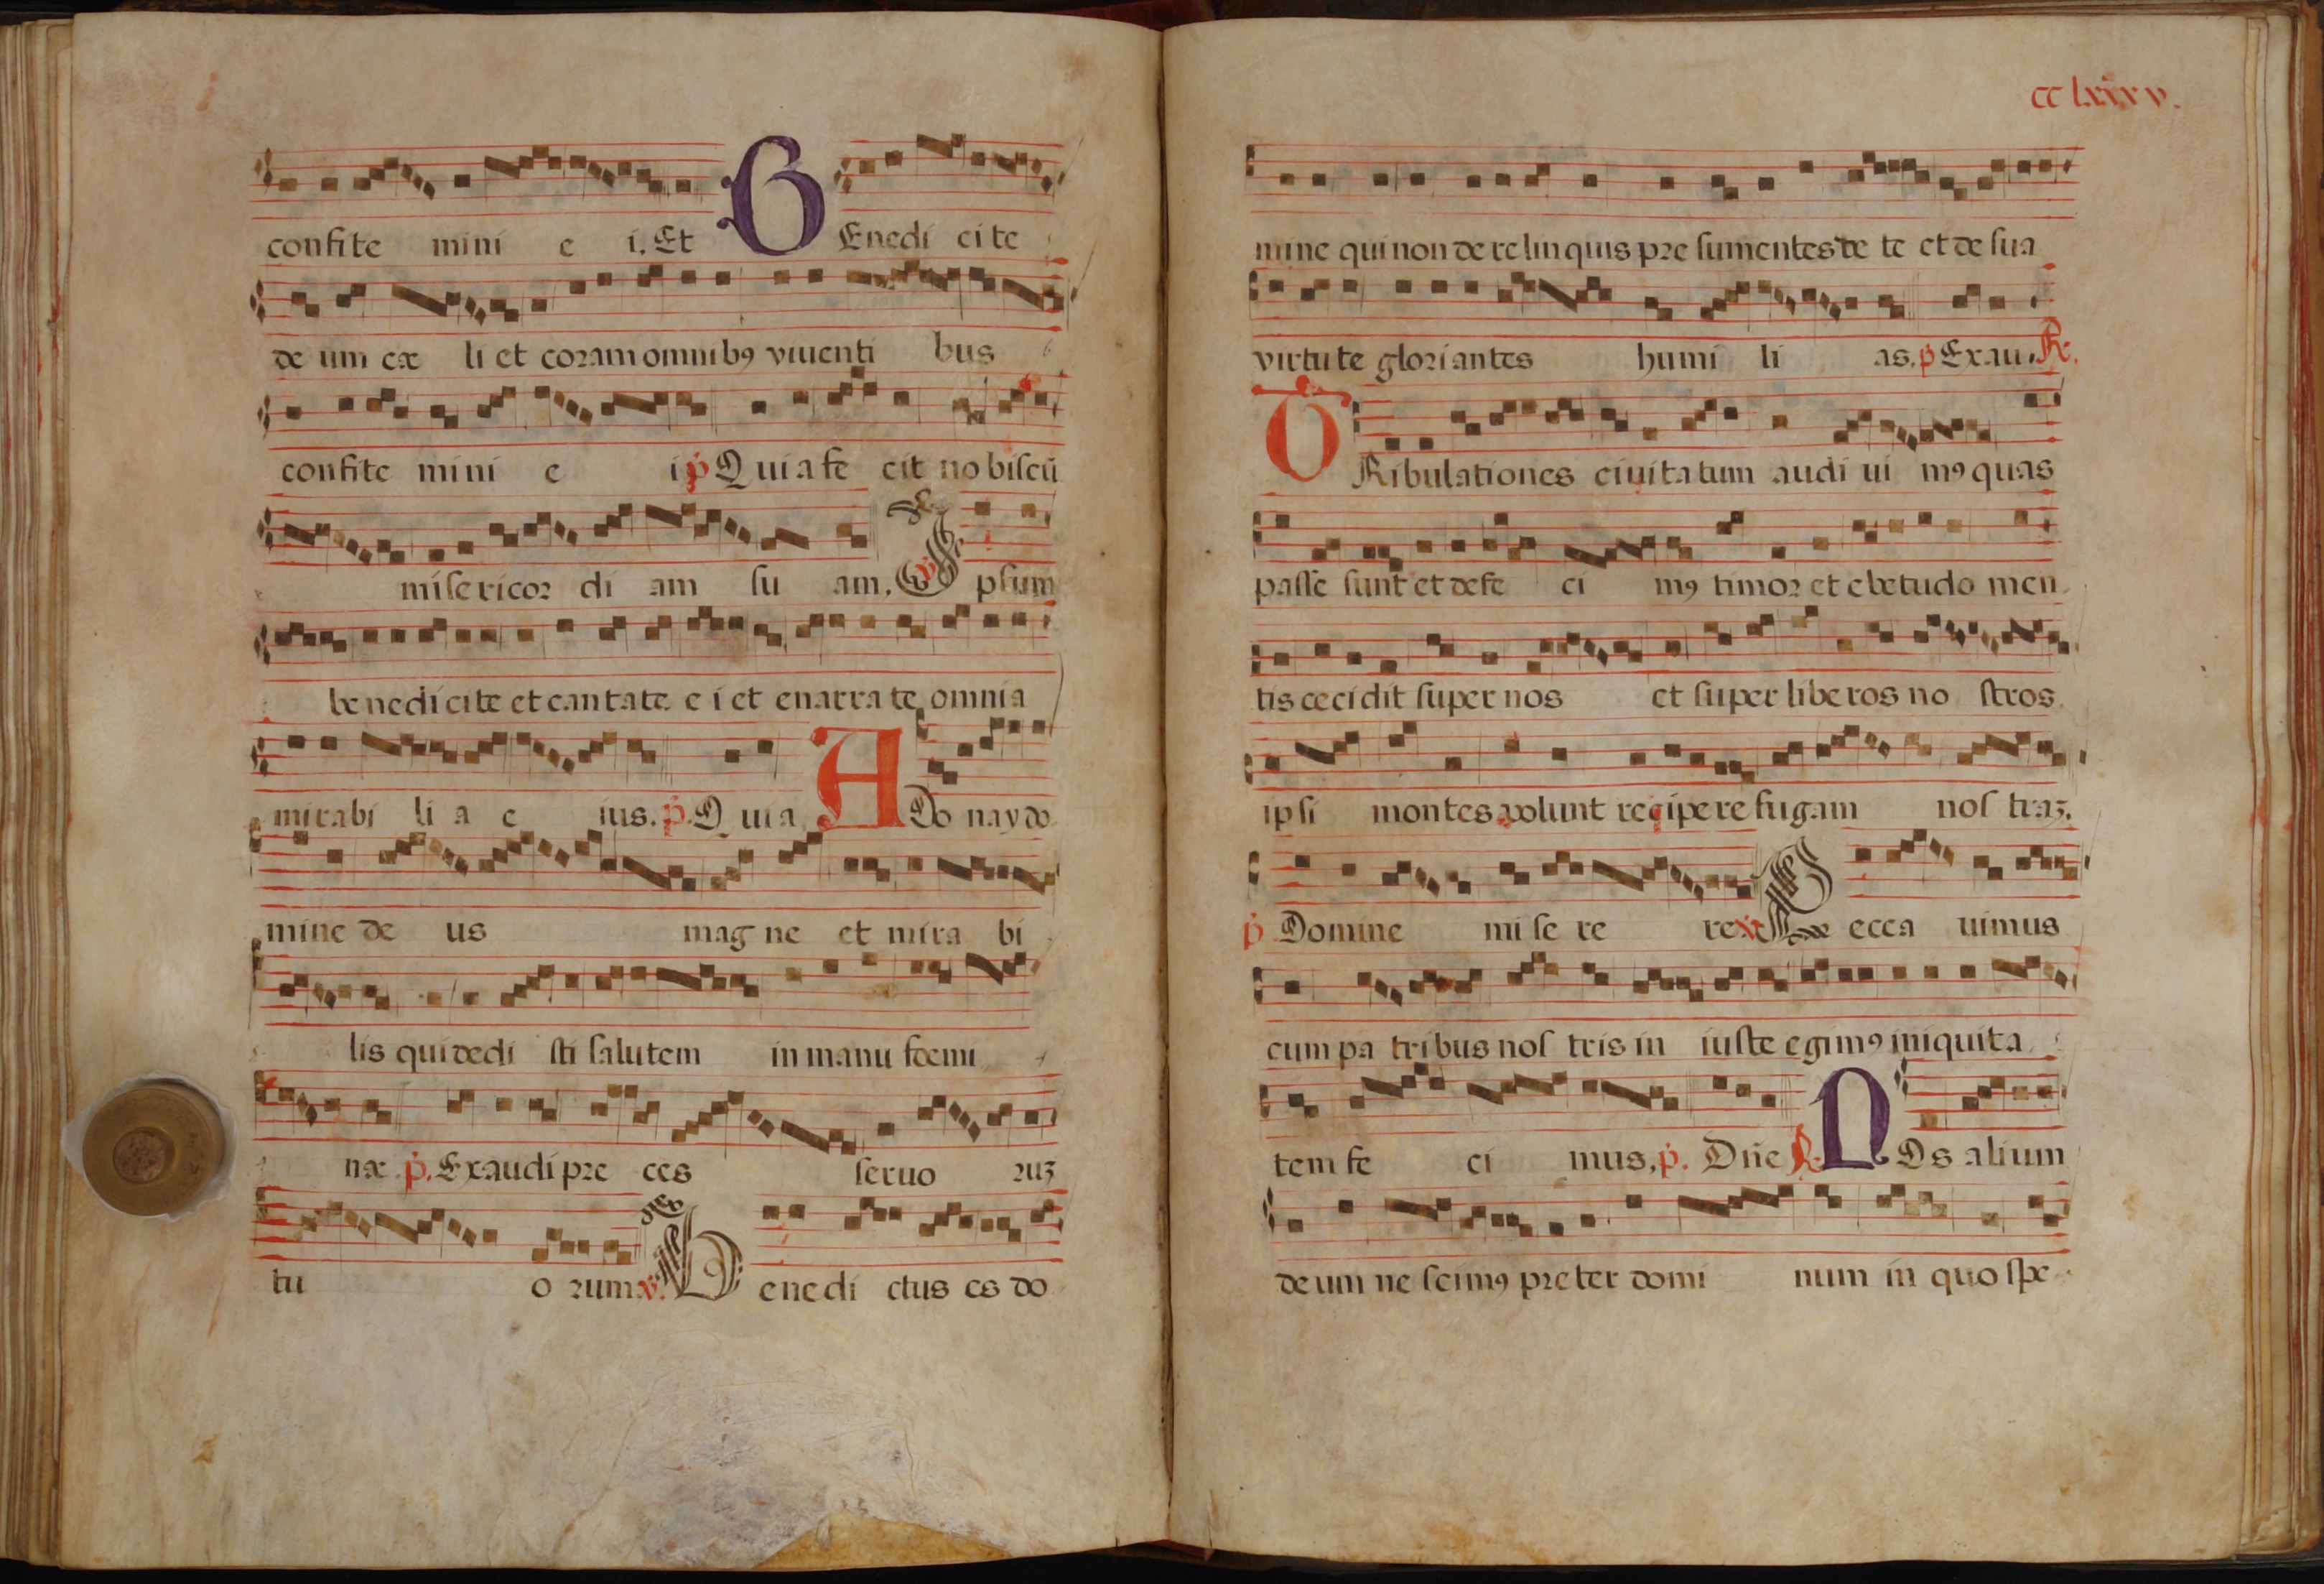 confite mini e i. Et BEnedi cite
de um cæ li et coram omnibꝯ viventi bus
confite mini e i p̍ Quia fe cit no biscū
misericor di am su am, ℣ I psum
benedicite et cantate e i et enarra te omnia
mirabi li a e ius. p̍. Quia ADo nay do
mine de us mag ne et mira bi
lis qui dedi sti salutem in manu foemi
næ p̍. Exaudi pre ces servo ruꝫ
tu o rum ℣. B enedi ctus es do
cclxxxv.
mine qui non de re lin quis pre sumentes de te et de sua
virtute gloriantes humi li as. p̍ Exau. ℟.
TRibulationes civitatum audi vi mꝯ quas
passe sunt et defe ci mꝯ timor et ebetudo men
tis cecidit super nos et super liberos no stros
ipsi montes volunt recipere fugam nos traꝫ.
p̍ Domine mi se re re ℣ P ecca vimus
cum pa tribus nos tris in iuste egimꝯ iniquita
tem fe ci mus, p̍. Dñe ℟ NOs alium
de um ne scimꝯ preter domi num in quo spe